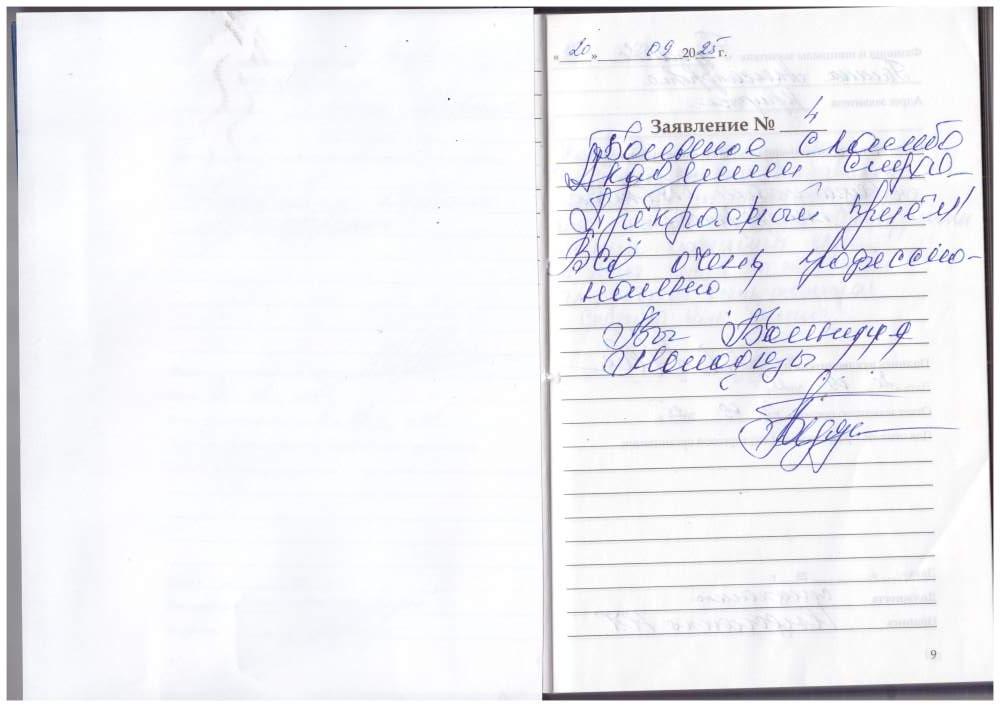 « 20 » 09 2025 г.
Заявление № 4
Большое спасибо
Академии слуха.
Прекрасный приём!
Всё очень професcио-
нально
Вы Большущие
Молодцы
9